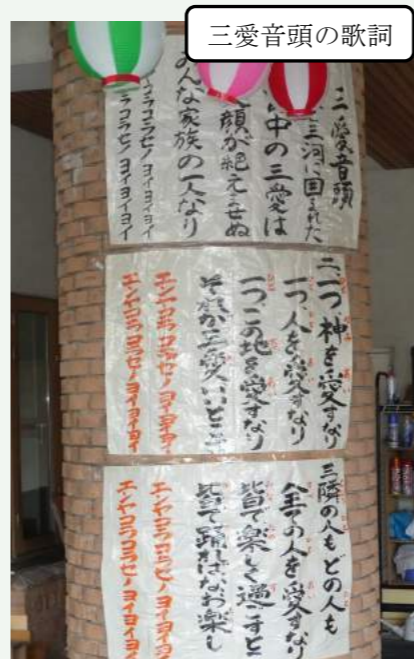 三愛音頭の歌詞
三愛音頭
三河に囲まれた
中の三愛は
顔が絶えせぬ
んな家族の一人なり
ラコラセノヨイヨイヨイ
二、一つ神を愛すなり
一つ、人を愛すなり
一つ、この地を愛すなり
それが三愛いいとこさ
エンヤコラコラセノヨイヨイヨイ
エンヤコラコラセノヨイヨイヨイ
三隣の人もどの人も
全ての人を愛すなり
皆で楽しく過ごすと
皆で踊ればなお楽し
エンヤコラコラセノヨイヨイヨイ
エンヤコラコラセノヨイヨイヨイ